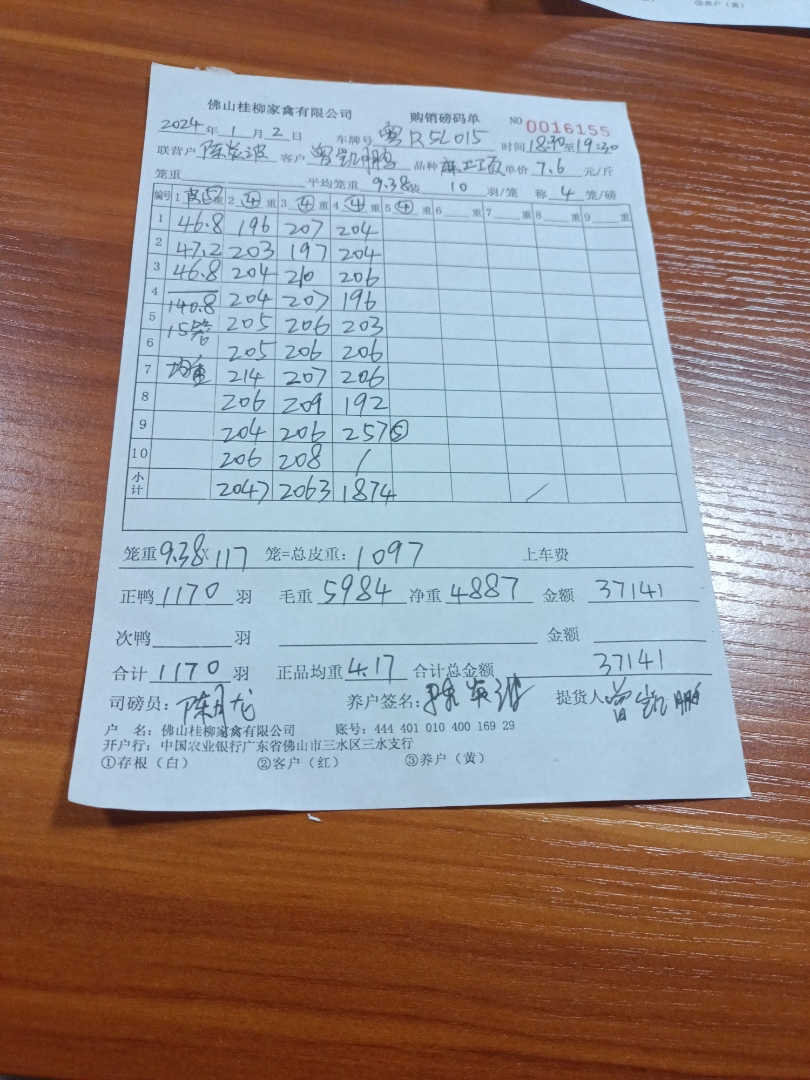 ③客户（黄）
佛山桂柳家禽有限公司 购销磅码单 NO 0016155
2024年1月2日 车牌号 粤R5L015 时间18:30至19:30
联营户 陈炎波 客户 曾凯鹏 品种 单价7.6元/斤
笼重 平均笼重 9.38 10 羽/笼 称 4 笼/磅
编号 1 重 2 ④ 重 3 ④ 重 4 ④ 重 5 ④ 重 6 重 7 重 8 重 9 重
1 46.8 196 207 204
2 47.2 203 197 204
3 46.8 204 210 206
4 140.8 204 207 196
5 15笼 205 206 203
6 205 206 206
7 均重 214 207 206
8 206 209 192
9 204 206 257⑤
10 206 208 /
小计 2047 2063 1874 /
笼重9.38X117 笼=总皮重：1097 上车费
正鸭1170羽 毛重5984 净重4887 金额 37141
次鸭 羽 金额
合计1170羽 正品均重4.17 合计总金额 37141
司磅员： 养户签名：陈炎波 提货人曾凯鹏
户 名：佛山桂柳家禽有限公司 账号：444 401 010 400 169 29
开户行：中国农业银行广东省佛山市三水区三水支行
①存根（白） ②客户（红） ③养户（黄）